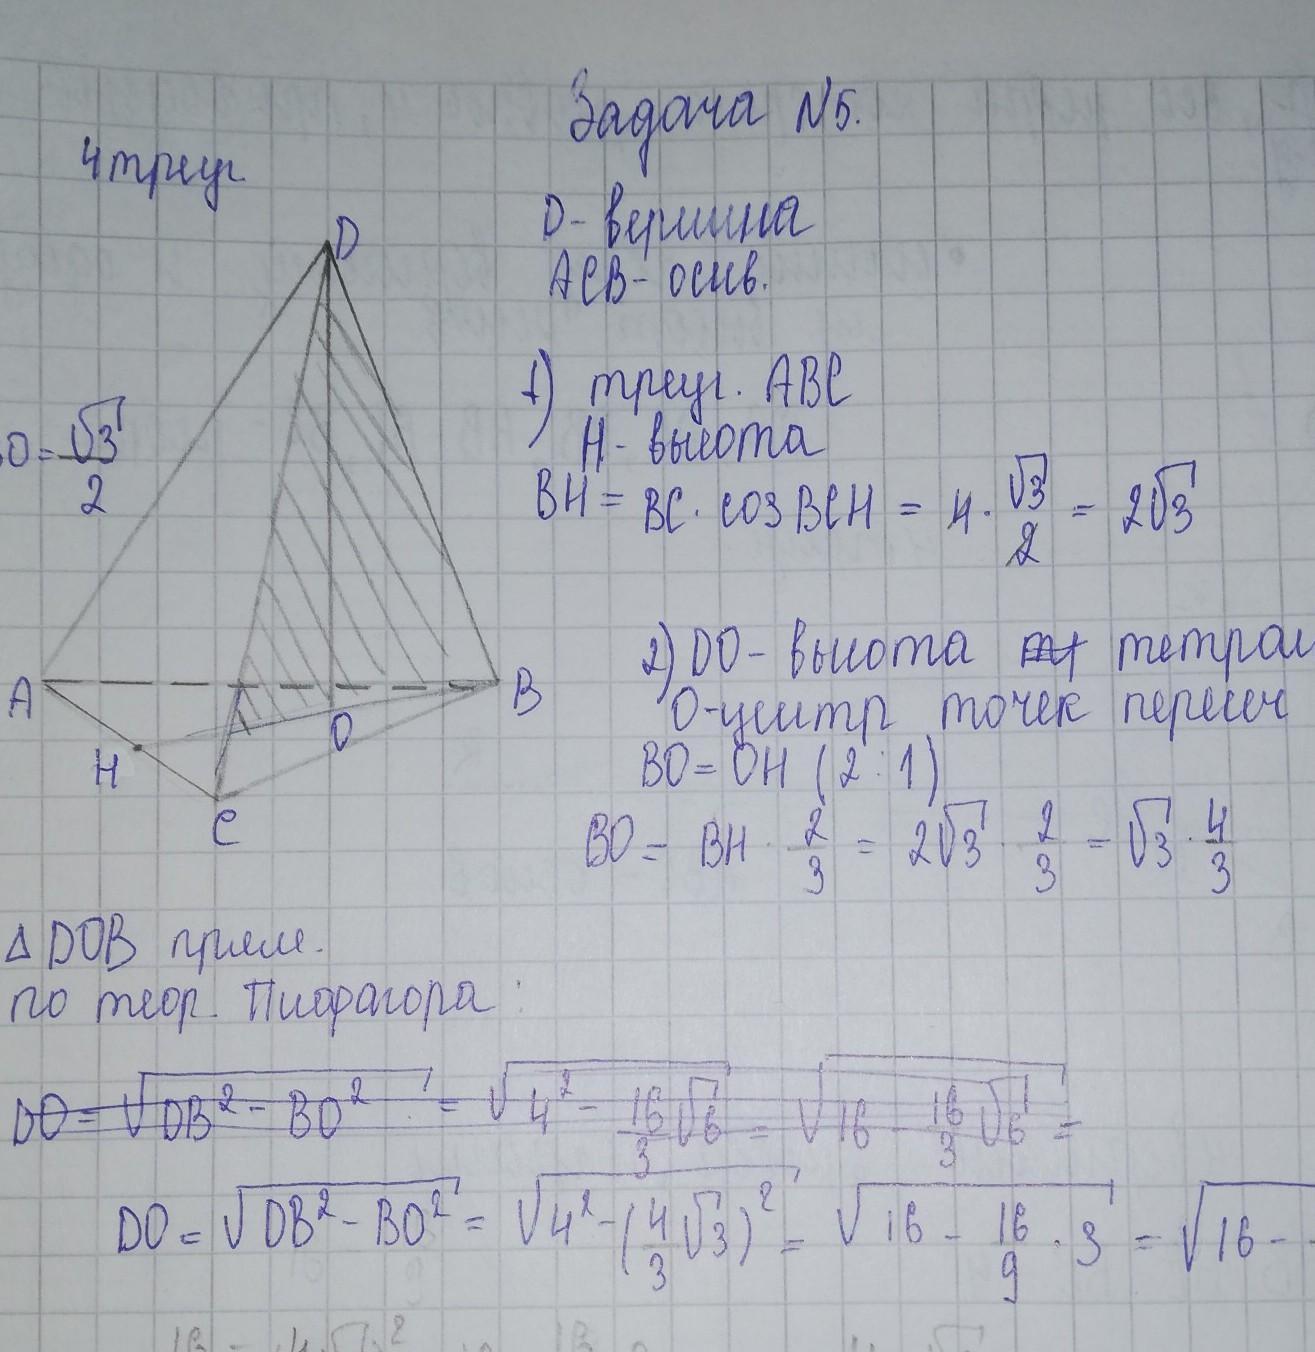 Задача N5.
4 треуг
D - вершина
ACB - оснв.
1) треуг. ABC
H - высота
BH = BC · cos BCH = 4 · √3/2 = 2√3
O = √3/2
D
A
B
H
O
C
2) DO - высота тетра
O - центр точек пересеч
BO = OH (2:1)
BO = BH · 2/3 = 2√3 · 2/3 = √3 · 4/3
Δ DOB прям.
по теор. Пиофагора:
DO = √(DB² - BO²) = √(4² - 16/3 √6) = √(16 - 16/3 √6) =
DO = √(DB² - BO²) = √(4² - (4/3 √3)²) = √(16 - 16/9 · 3) = √(16 -